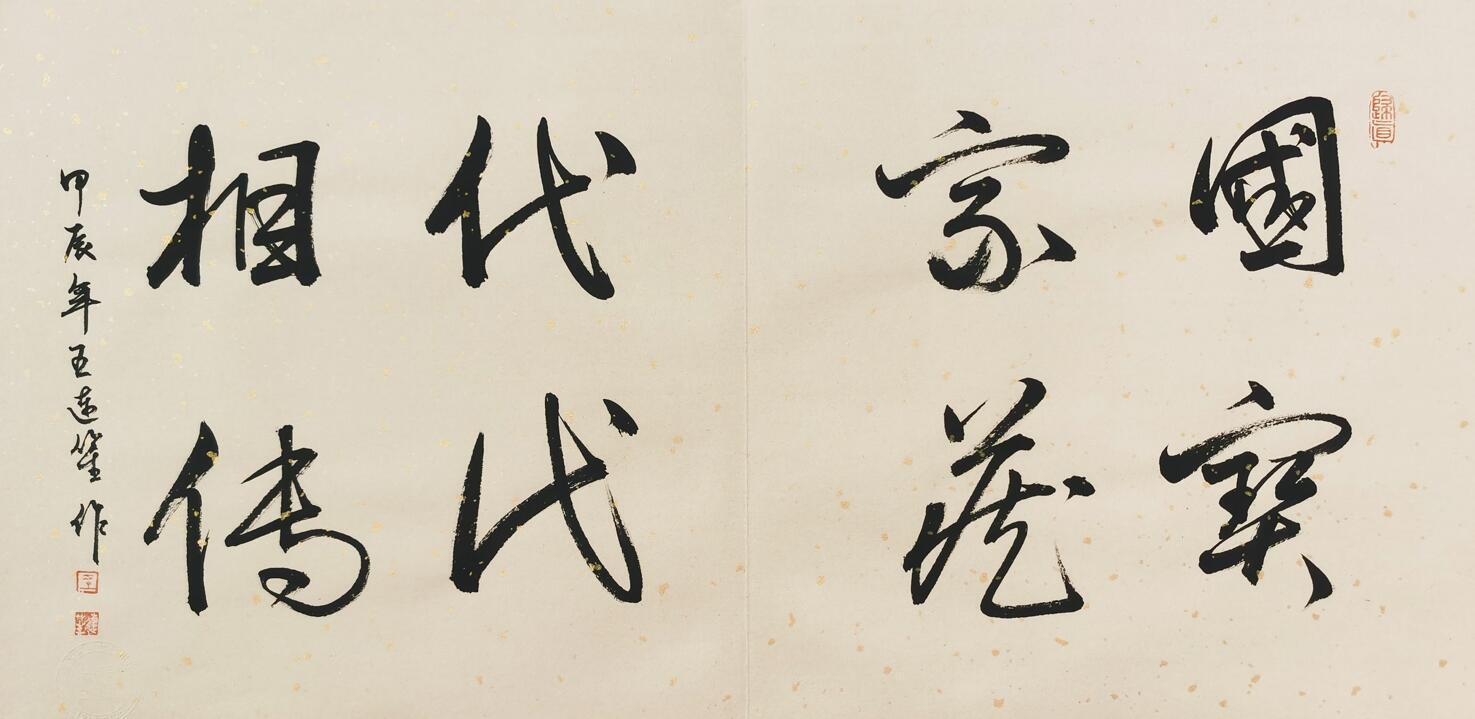 國寶
家藏
代代
相傳
甲辰年王連笙作